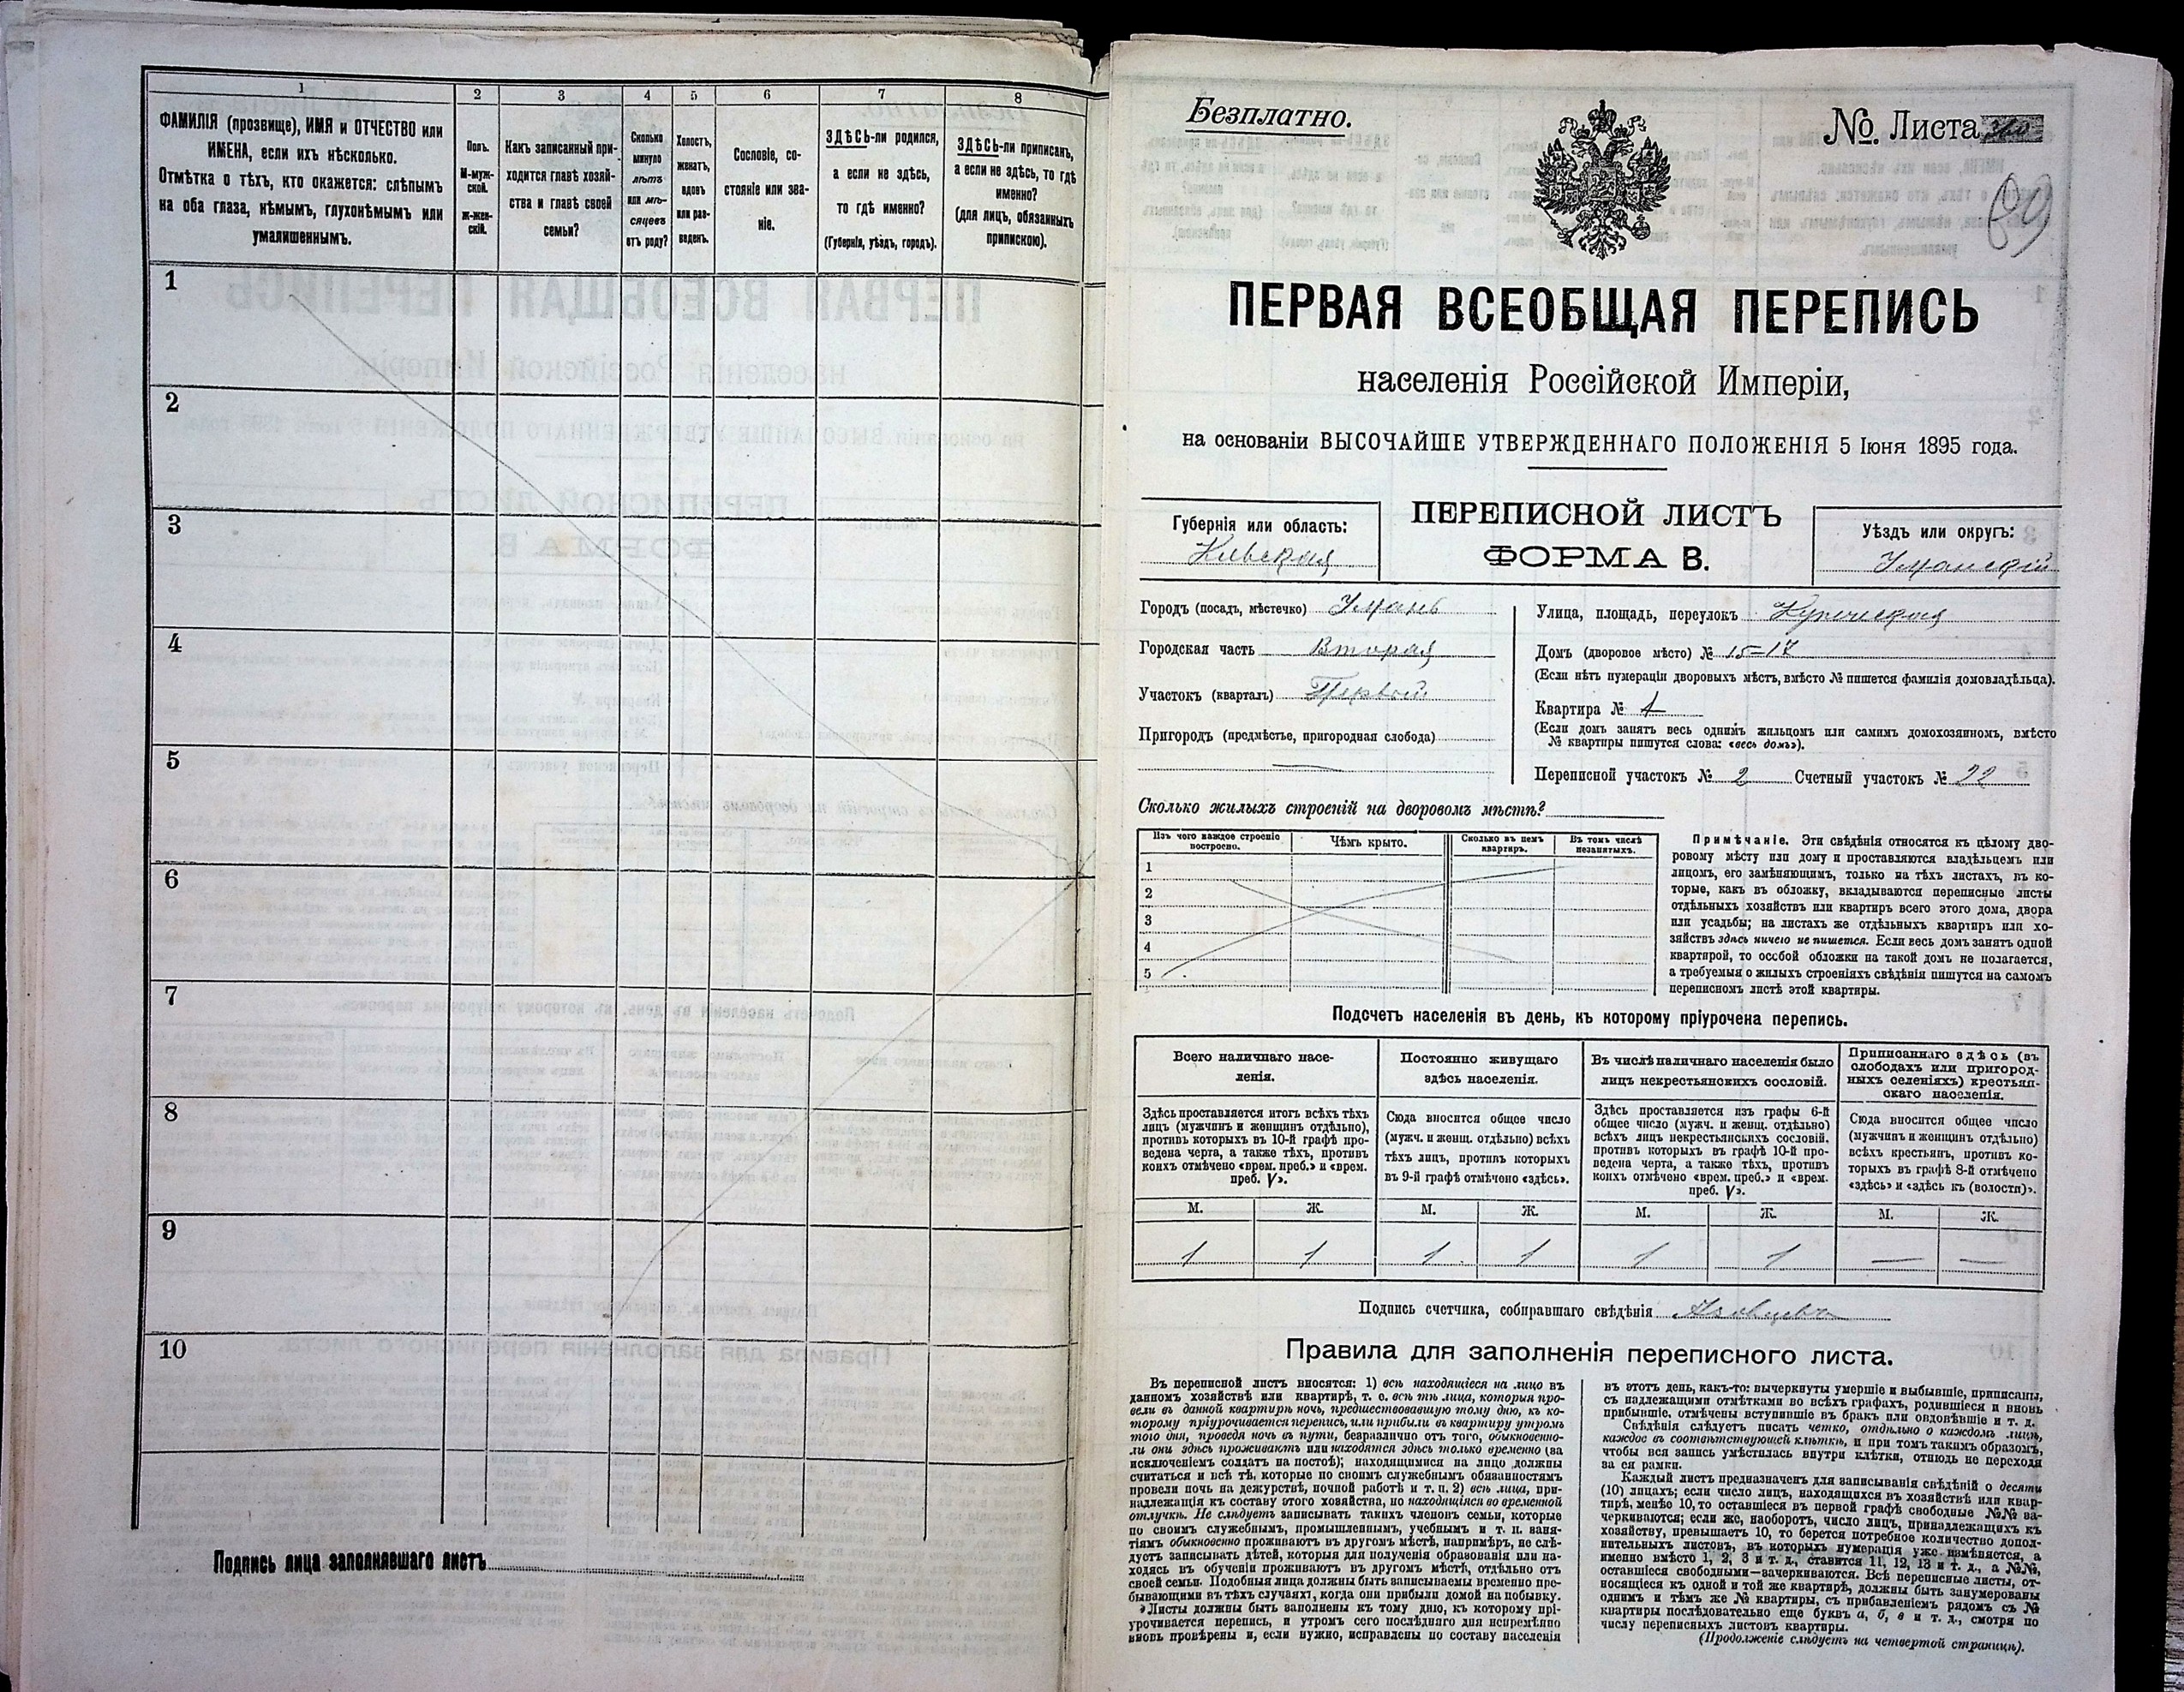 1
2
3
4
5
6
7
8
ФАМИЛІЯ (прозвище), ИМЯ и ОТЧЕСТВО или
ИМЕНА, если ихъ нѣсколько.
Отмѣтка о тѣхъ, кто окажется: слѣпымъ
на оба глаза, нѣмымъ, глухонѣмымъ или
умалишеннымъ.
Полъ.
М-муж-
ской.
ж-жен-
скій.
Какъ записанный при-
ходится главѣ хозяй-
ства и главѣ своей
семьи?
Сколько
минуло
лѣтъ
или мѣ-
сяцевъ
отъ роду?
Холостъ,
женатъ,
вдовъ
или раз-
веденъ.
Сословіе, со-
стояніе или зва-
ніе.
ЗДѢСЬ-ли родился,
а если не здѣсь,
то гдѣ именно?
(Губернія, уѣздъ, городъ).
ЗДѢСЬ-ли приписанъ,
а если не здѣсь, то гдѣ
именно?
(для лицъ, обязанныхъ
припискою).
1
2
3
4
5
6
7
8
9
10
Подпись лица заполнявшаго листъ
Безплатно.
№ Листа
ПЕРВАЯ ВСЕОБЩАЯ ПЕРЕПИСЬ
населенія Россійской Имперіи,
на основаніи ВЫСОЧАЙШЕ УТВЕРЖДЕННАГО ПОЛОЖЕНІЯ 5 Іюня 1895 года.
Губернія или область:
Кіевская
ПЕРЕПИСНОЙ ЛИСТЪ
ФОРМА В.
Уѣздъ или округъ:
Уманскій
Городъ (посадъ, мѣстечко) Умань
Городская часть Вторая
Участокъ (кварталъ) Первый
Пригородъ (предмѣстье, пригородная слобода)
Улица, площадь, переулокъ Купеческая
Домъ (дворовое мѣсто) № 15-17
(Если нѣтъ нумераціи дворовыхъ мѣстъ, вмѣсто № пишется фамилія домовладѣльца).
Квартира № 1
(Если домъ занятъ весь однимъ жильцомъ или самимъ домохозяиномъ, вмѣсто
№ квартиры пишутся слова: «весь домъ»).
Переписной участокъ № 2 Счетный участокъ № 22
Сколько жилыхъ строеній на дворовомъ мѣстѣ?
Изъ чего каждое строеніе
построено.
Чѣмъ крыто.
Сколько въ немъ
квартиръ.
Въ томъ числѣ
незанятыхъ.
1
2
3
4
5
Примѣчаніе. Эти свѣдѣнія относятся къ цѣлому дво-
ровому мѣсту или дому и проставляются владѣльцемъ или
лицомъ, его замѣняющимъ, только на тѣхъ листахъ, въ ко-
торые, какъ въ обложку, вкладываются переписные листы
отдѣльныхъ хозяйствъ или квартиръ всего этого дома, двора
или усадьбы; на листахъ же отдѣльныхъ квартиръ или хо-
зяйствъ здѣсь ничего не пишется. Если весь домъ занятъ одной
квартирой, то особой обложки на такой домъ не полагается,
а требуемыя о жилыхъ строеніяхъ свѣдѣнія пишутся на самомъ
переписномъ листѣ этой квартиры.
Подсчетъ населенія въ день, къ которому пріурочена перепись.
Всего наличнаго насе-
ленія.
Постоянно живущаго
здѣсь населенія.
Въ числѣ наличнаго населенія было
лицъ некрестьянскихъ сословій.
Приписаннаго здѣсь (въ
слободахъ или пригород-
ныхъ селеніяхъ) крестьян-
скаго населенія.
Здѣсь проставляется итогъ всѣхъ тѣхъ
лицъ (мужчинъ и женщинъ отдѣльно),
противъ которыхъ въ 10-й графѣ про-
ведена черта, а также тѣхъ, противъ
коихъ отмѣчено «врем. преб.» и «врем.
преб. V».
Сюда вносится общее число
(мужч. и женщ. отдѣльно) всѣхъ
тѣхъ лицъ, противъ которыхъ
въ 9-й графѣ отмѣчено «здѣсь».
Здѣсь проставляется изъ графы 6-й
общее число (мужч. и женщ. отдѣльно)
всѣхъ лицъ некрестьянскихъ сословій.
противъ которыхъ въ графѣ 10-й про-
ведена черта, а также тѣхъ, противъ
коихъ отмѣчено «врем. преб.» и «врем.
преб. V».
Сюда вносится общее число
(мужчинъ и женщинъ отдѣльно)
всѣхъ крестьянъ, противъ ко-
торыхъ въ графѣ 8-й отмѣчено
«здѣсь» и «здѣсь къ (волости)».
М. Ж. М. Ж. М. Ж. М. Ж.
1 1 1 1 1 1 — —
Подпись счетчика, собиравшаго свѣдѣнія
Правила для заполненія переписного листа.
Въ переписной листъ вносятся: 1) всѣ находящіеся на лицо въ
данномъ хозяйствѣ или квартирѣ, т. е. всѣ тѣ лица, которыя про-
вели въ данной квартирѣ ночь, предшествовавшую тому дню, къ ко-
торому пріурочивается перепись, или прибыли въ квартиру утромъ
того дня, проведя ночь въ пути, безразлично отъ того, обыкновенно-
ли они здѣсь проживаютъ или находятся здѣсь только временно (за
исключеніемъ солдатъ на постоѣ); находящимися на лицо должны
считаться и всѣ тѣ, которые по своимъ служебнымъ обязанностямъ
провели ночь на дежурствѣ, ночной работѣ и т. п. 2) всѣ лица, при-
надлежащія къ составу этого хозяйства, но находящіяся во временной
отлучкѣ. Не слѣдуетъ записывать такихъ членовъ семьи, которые
по своимъ служебнымъ, промышленнымъ, учебнымъ и т. п. заня-
тіямъ обыкновенно проживаютъ въ другомъ мѣстѣ, напримѣръ, не слѣ-
дуетъ записывать дѣтей, которыя для полученія образованія или на-
ходясь въ обученіи проживаютъ въ другомъ мѣстѣ, отдѣльно отъ
своей семьи. Подобныя лица должны быть записываемы временно пре-
бывающими въ тѣхъ случаяхъ, когда они прибыли домой на побывку.
Листы должны быть заполнены къ тому дню, къ которому прі-
урочивается перепись, и утромъ сего послѣдняго дня непремѣнно
вновь провѣрены и, если нужно, исправлены по составу населенія
въ этотъ день, какъ-то: вычеркнуты умершіе и выбывшіе, приписаны,
съ надлежащими отмѣтками во всѣхъ графахъ, родившіеся и вновь
прибывшіе, отмѣчены вступившіе въ бракъ или овдовѣвшіе и т. д.
Свѣдѣнія слѣдуетъ писать четко, отдѣльно о каждомъ лицѣ,
каждое въ соотвѣтствующей клѣткѣ, и при томъ такимъ образомъ,
чтобы вся запись умѣстилась внутри клѣтки, отнюдь не переходя
за ея рамки.
Каждый листъ предназначенъ для записыванія свѣдѣній о десяти
(10) лицахъ; если число лицъ, находящихся въ хозяйствѣ или квар-
тирѣ, менѣе 10, то оставшіеся въ первой графѣ свободные №№ за-
черкиваются; если же, наоборотъ, число лицъ, принадлежащихъ къ
хозяйству, превышаетъ 10, то берется потребное количество допол-
нительныхъ листовъ, въ которыхъ нумерація уже измѣняется, а
именно вмѣсто 1, 2, 3 и т. д., ставится 11, 12, 13 и т. д., а №№,
оставшіеся свободными—зачеркиваются. Всѣ переписные листы, от-
носящіеся къ одной и той же квартирѣ, должны быть занумерованы
однимъ и тѣмъ же № квартиры, съ прибавленіемъ рядомъ съ №
квартиры послѣдовательно еще буквъ а, б, в и т. д., смотря по
числу переписныхъ листовъ квартиры.
(Продолженіе слѣдуетъ на четвертой страницѣ).